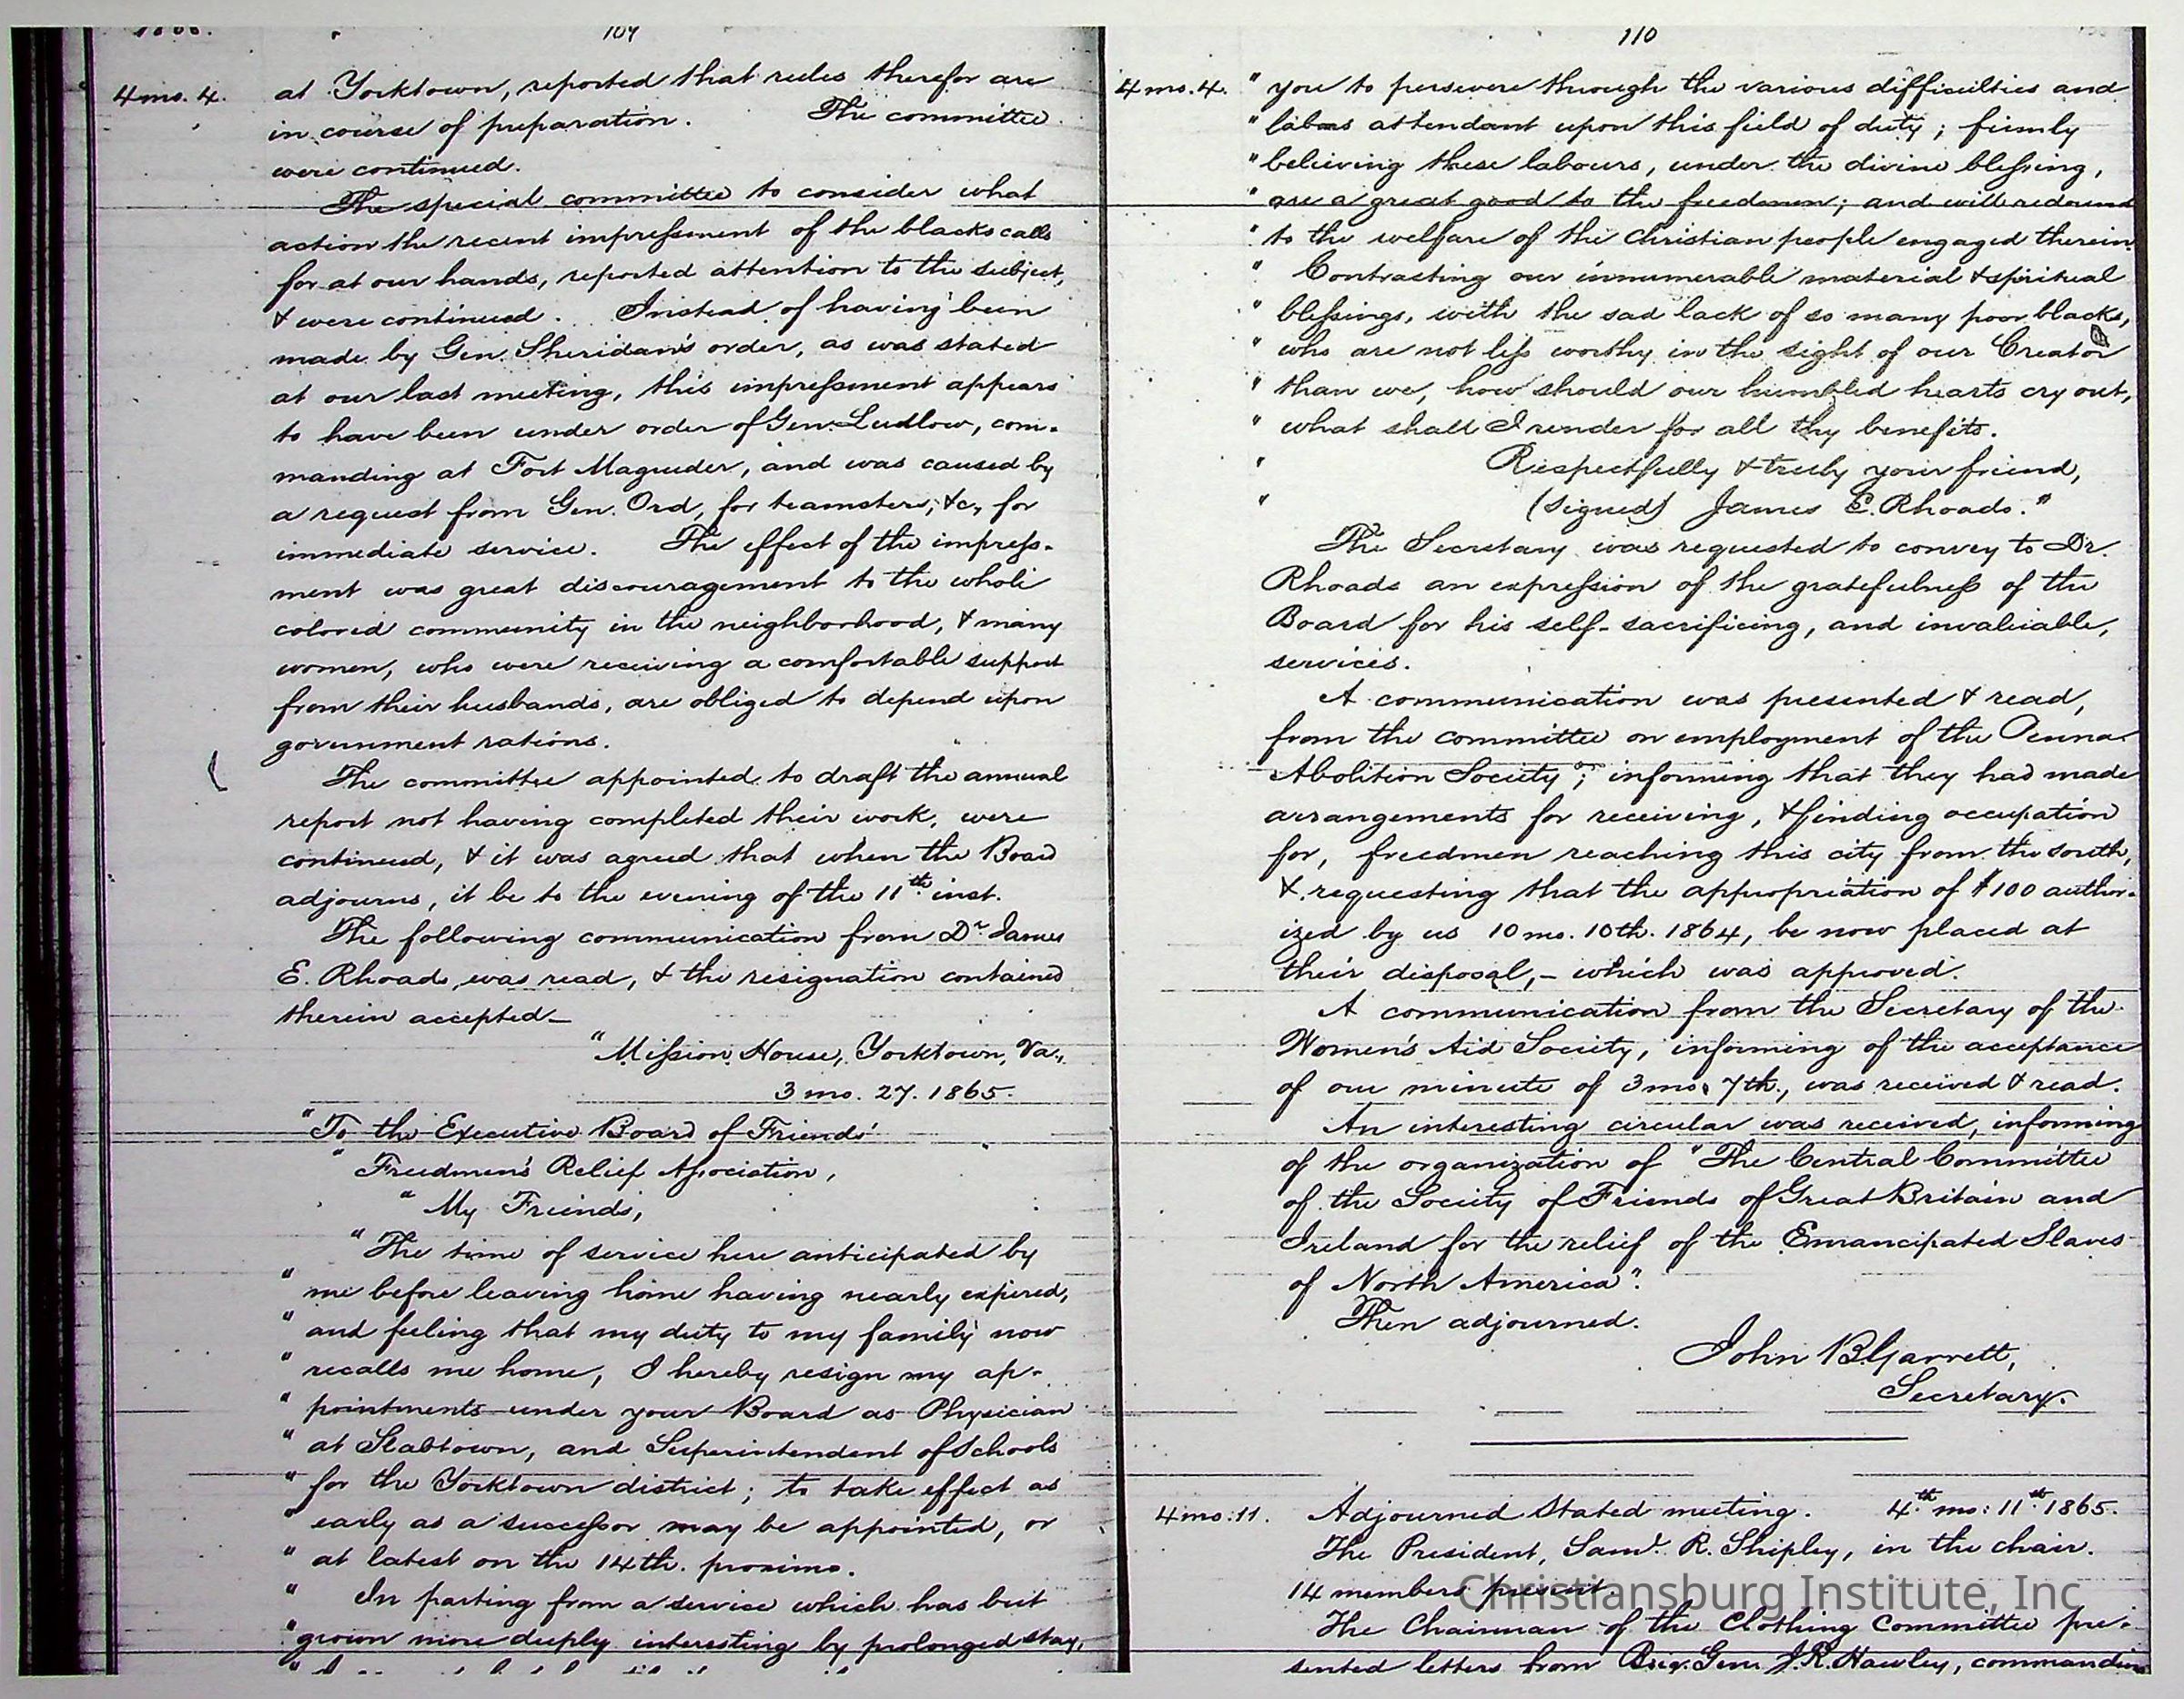 109
4 mo. 4.
at Yorktown, reported that rules therefor are
in course of preparation. The committee
were continued.
The special committee to consider what
action the recent impressment of the blacks calls
for at our hands, reported attention to the subject,
& were continued. Instead of having been
made by Gen. Sheridan's order, as was stated
at our last meeting, this impressment appears
to have been under order of Gen. Ludlow, com-
manding at Fort Magruder, and was caused by
a request from Gen. Ord, for teamsters, &c, for
immediate service. The effect of the impress-
ment was great discouragement to the whole
colored community in the neighborhood, & many
women, who were receiving a comfortable support
from their husbands, are obliged to depend upon
government rations.
The committee appointed to draft the annual
report not having completed their work, were
continued, & it was agreed that when the Board
adjourns, it be to the evening of the 11th inst.
The following communication from Dr. James
E. Rhoads, was read, & the resignation contained
therein accepted—
"Mission House, Yorktown, Va.,
3 mo. 27. 1865.
"To the Executive Board of Friends'
" Freedmen's Relief Association,
" My Friends,
" The time of service here anticipated by
" me before leaving home having nearly expired,
" and feeling that my duty to my family now
" recalls me home, I hereby resign my ap-
" pointments under your Board as Physician
" at Slabtown, and Superintendent of Schools
" for the Yorktown district; to take effect as
" early as a successor may be appointed, or
" at latest on the 14th. proximo.
" In parting from a service which has but
" grown more deeply interesting by prolonged stay,
110
4 mo. 4.
" you to persevere through the various difficulties and
" labors attendant upon this field of duty; firmly
" believing these labours, under the divine blessing,
" are a great good to the freedmen; and will redound
" to the welfare of the Christian people engaged therein.
" Contrasting our innumerable material & spiritual
" blessings, with the sad lack of so many poor blacks,
" who are not less worthy in the sight of our Creator
" than we, how should our humbled hearts cry out,
" what shall I render for all thy benefits.
" Respectfully & truly your friend,
" (Signed) James E. Rhoads."
The Secretary was requested to convey to Dr.
Rhoads an expression of the gratefulness of the
Board for his self-sacrificing, and invaluable,
services.
A communication was presented & read,
from the committee on employment of the Penna.
Abolition Society; informing that they had made
arrangements for receiving, & finding occupation
for, freedmen reaching this city from the south,
& requesting that the appropriation of $100 author-
ized by us 10 mo. 10th. 1864, be now placed at
their disposal,— which was approved.
A communication from the Secretary of the
Women's Aid Society, informing of the acceptance
of our minute of 3 mo. 7th., was received & read.
An interesting circular was received, informing
of the organization of "The Central Committee
of the Society of Friends of Great Britain and
Ireland for the relief of the Emancipated Slaves
of North America".
Then adjourned.
John B Garrett,
Secretary.
4 mo: 11.
Adjourned Stated meeting. 4th mo: 11th 1865.
The President, Saml. R. Shipley, in the chair.
14 members present.
The Chairman of the Clothing Committee pre-
sented letters from Brig. Gen. J. R. Hawley, commanding
Christiansburg Institute, Inc